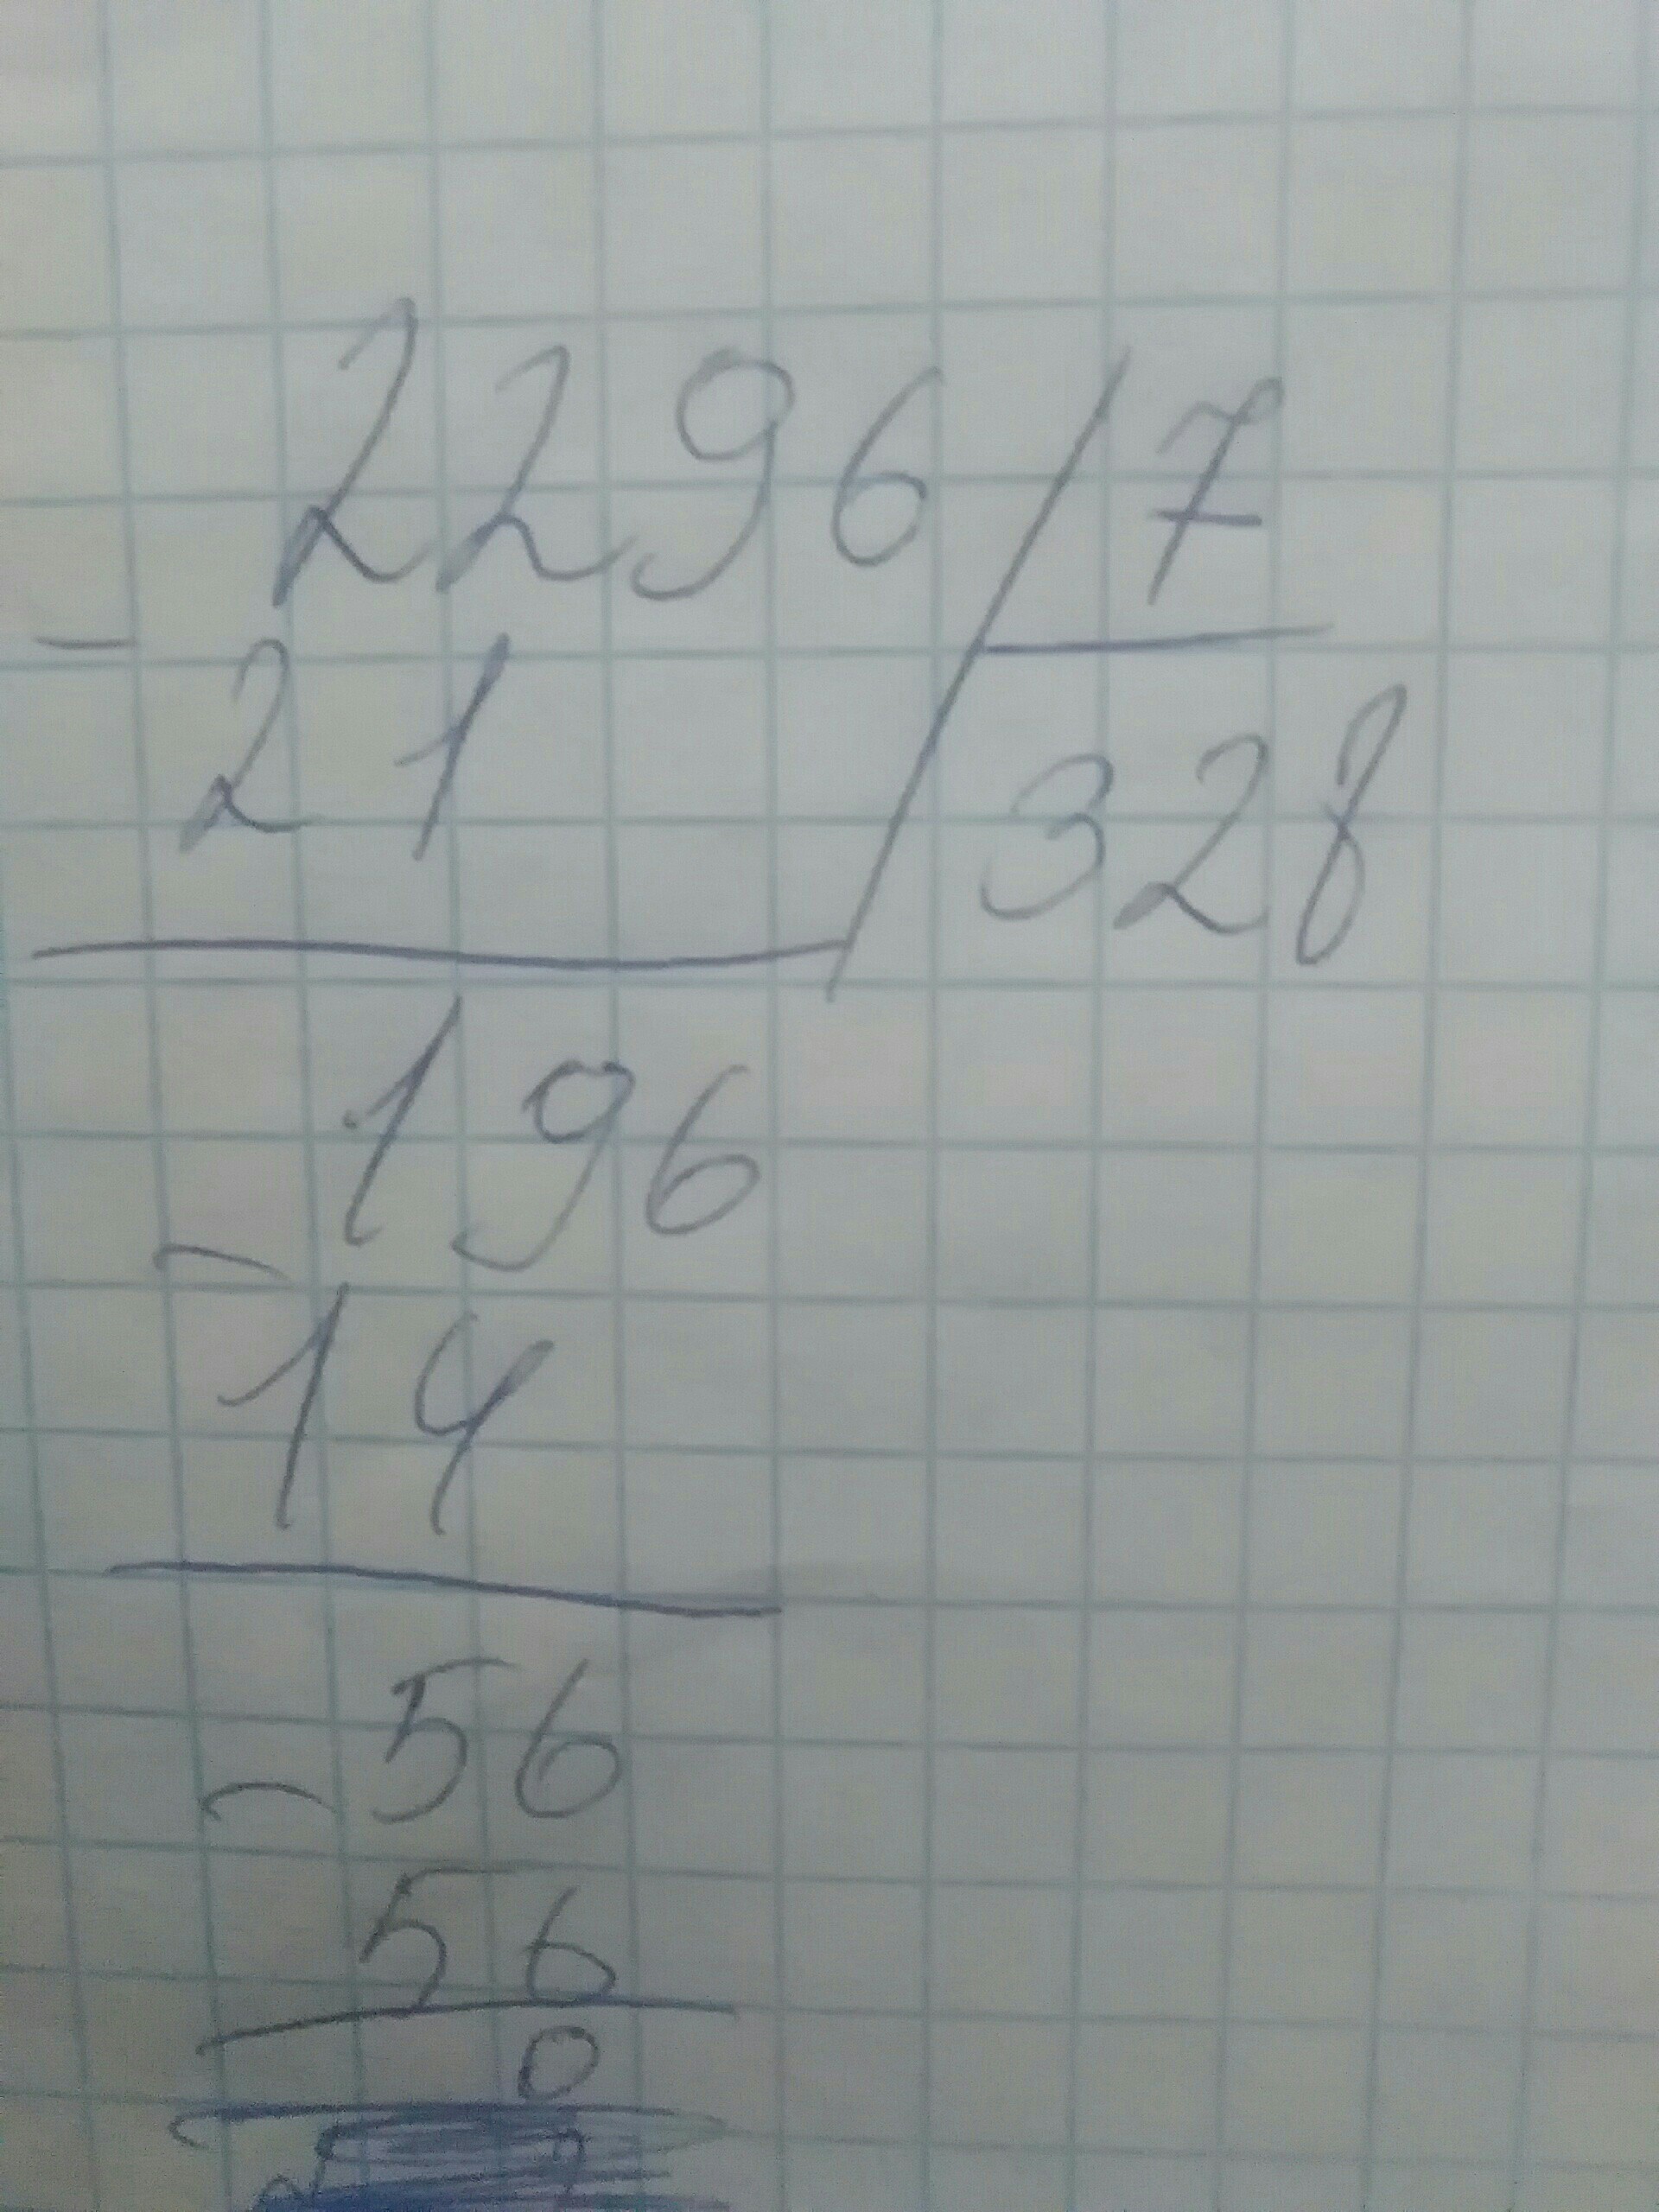 2296/7
- 21
328
196
- 14
56
- 56
0